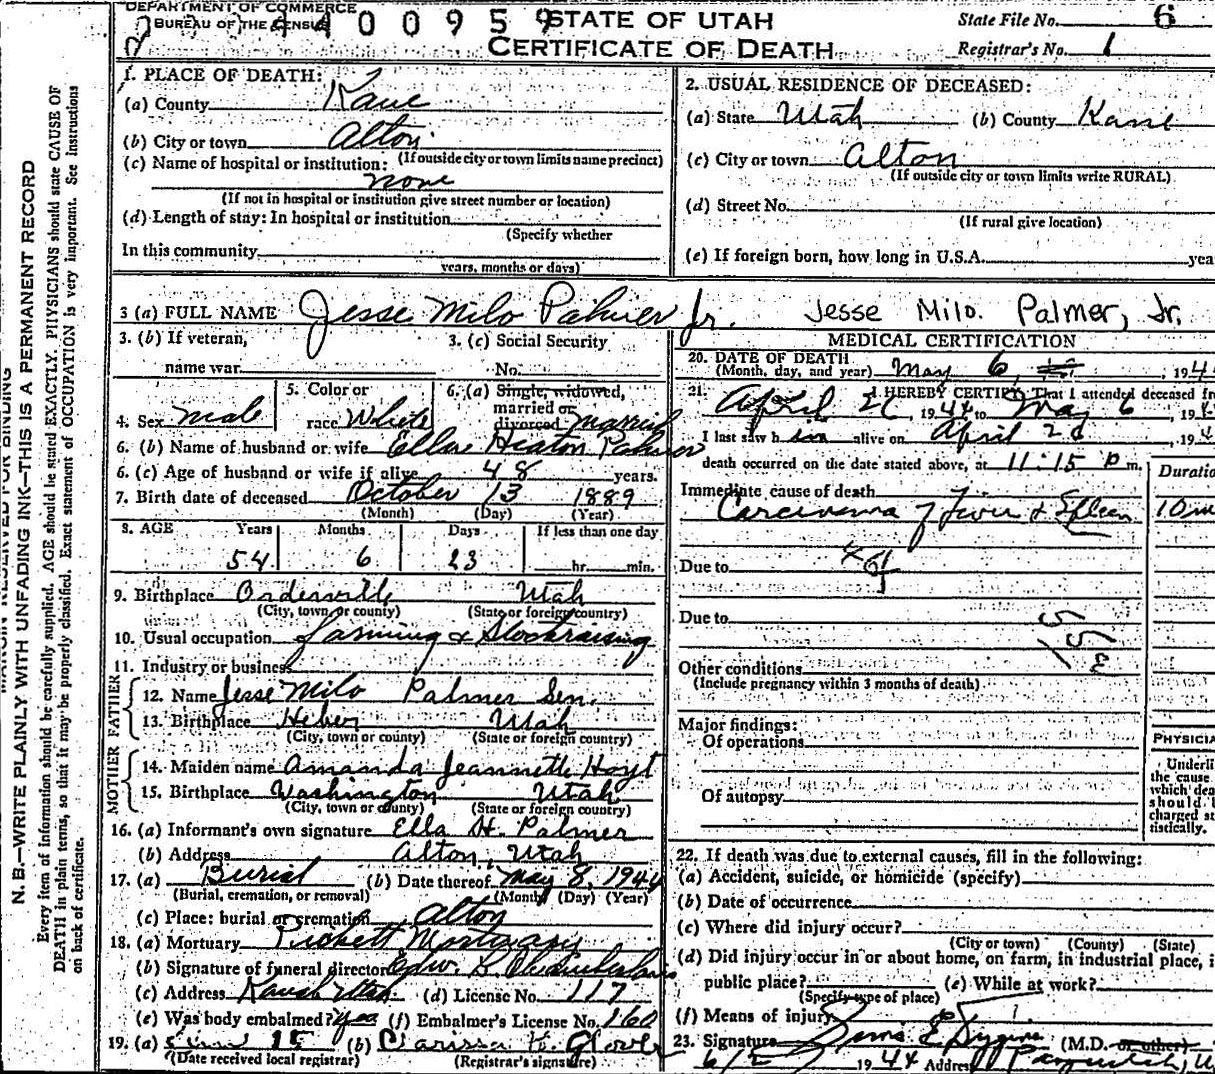 DEPARTMENT OF COMMERCE
BUREAU OF THE CENSUS
4400959
STATE OF UTAH
CERTIFICATE OF DEATH
State File No. 6
Registrar's No. 1
N. B.—WRITE PLAINLY WITH UNFADING INK—THIS IS A PERMANENT RECORD
Every item of information should be carefully supplied. AGE should be stated EXACTLY. PHYSICIANS should state CAUSE OF
DEATH in plain terms, so that it may be properly classified. Exact statement of OCCUPATION is very important. See Instructions
on back of certificate.
1. PLACE OF DEATH:
(a) County Kane
(b) City or town Alton
(If outside city or town limits name precinct)
(c) Name of hospital or institution:
none
(If not in hospital or institution give street number or location)
(d) Length of stay: In hospital or institution
(Specify whether
In this community
years, months or days)
2. USUAL RESIDENCE OF DECEASED:
(a) State Utah (b) County Kane
(c) City or town Alton
(If outside city or town limits write RURAL)
(d) Street No.
(If rural give location)
(e) If foreign born, how long in U.S.A. yea
3 (a) FULL NAME Jesse Milo Palmer Jr. Jesse Milo. Palmer, Jr.
3. (b) If veteran,
name war
3. (c) Social Security
No.
4. Sex male
5. Color or
race White
6. (a) Single, widowed,
married or
divorced married
6. (b) Name of husband or wife Ella Heaton Palmer
6. (c) Age of husband or wife if alive 48 years.
7. Birth date of deceased October 13 1889
(Month) (Day) (Year)
8. AGE Years Months Days If less than one day
54 6 23 hr. min.
9. Birthplace Orderville Utah
(City, town, or county) (State or foreign country)
10. Usual occupation farming & Stockraising
11. Industry or business
FATHER
12. Name Jesse Milo Palmer Sen.
13. Birthplace Heber Utah
(City, town or county) (State or foreign country)
MOTHER
14. Maiden name Amanda Jeannette Hoyt
15. Birthplace Washington Utah
(City, town or county) (State or foreign country)
16. (a) Informant's own signature Ella H. Palmer
(b) Address Alton, Utah
17. (a) Burial (b) Date thereof May 8, 1944
(Burial, cremation, or removal) (Month) (Day) (Year)
(c) Place: burial or cremation Alton
18. (a) Mortuary Mortuary
(b) Signature of funeral director Edw. L. Chamberlain
(c) Address Kanab Utah (d) License No. 117
(e) Was body embalmed? yes (f) Embalmer's License No. 160
19. (a) 15 (b) Glover
(Date received local registrar) (Registrar's signature)
MEDICAL CERTIFICATION
20. DATE OF DEATH
(Month, day, and year) May 6, , 194
21. I HEREBY CERTIFY That I attended deceased fr
April 26, 1944 to May 6, 19
I last saw him alive on April 28, 194
death occurred on the date stated above, at 11:15 p m.
Duratio
Immediate cause of death
Carcinoma of Liver & Spleen 10 m
Due to
Due to
Other conditions
(Include pregnancy within 3 months of death)
Major findings:
Of operations
Of autopsy
PHYSICIA
Underli
the cause
which dea
should b
charged st
tistically.
22. If death was due to external causes, fill in the following:
(a) Accident, suicide, or homicide (specify)
(b) Date of occurrence
(c) Where did injury occur?
(City or town) (County) (State)
(d) Did injury occur in or about home, on farm, in industrial place, i
public place? (e) While at work?
(Specify type of place)
(f) Means of injury
23. Signature Sims E. (M.D. or other)
1944 Address Panguitch, U